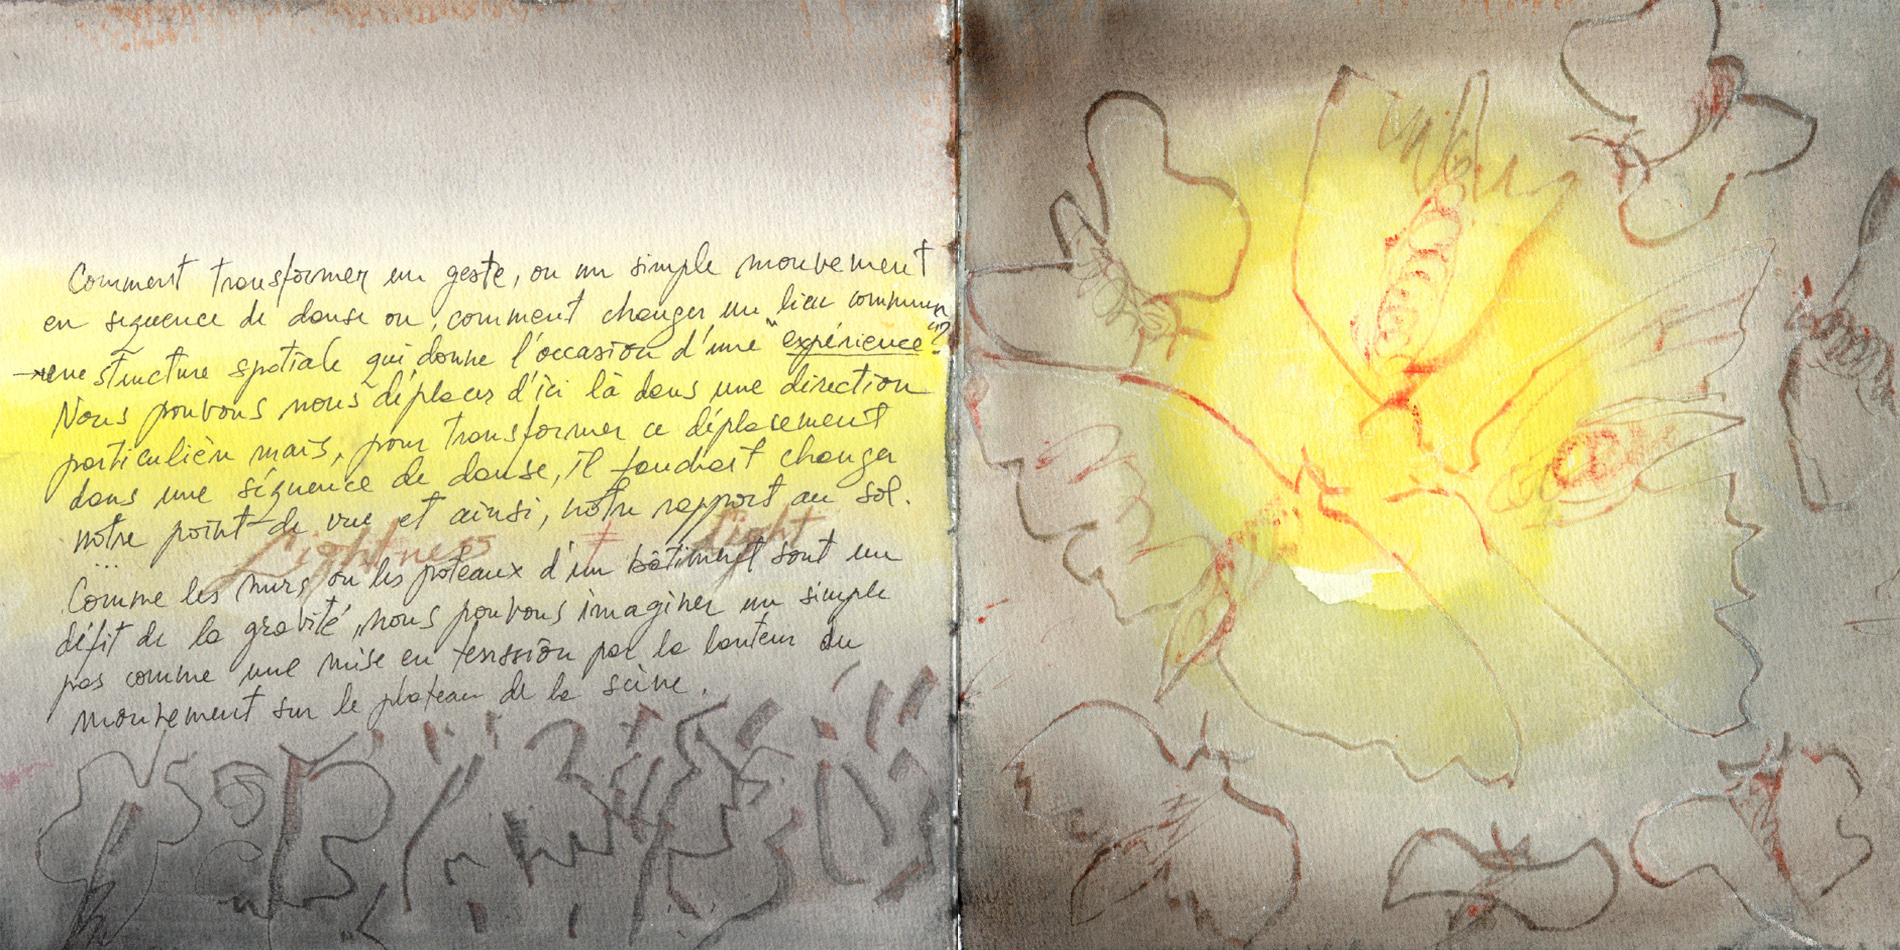 Comment transformer un geste, ou un simple mouvement
en séquence de danse ou, comment changer un lieu commun
→ une structure spatiale qui donne l'occasion d'une "expérience"?
Nous pouvons nous déplacer d'ici là dans une direction
particulièr mais, pour transformer ce déplacement
dans une séquence de danse, il faudrait changer
notre point-de vue et ainsi, notre rapport au sol.
...
Lightness ≠ light
Comme les murs ou les poteaux d'un bâtiment sont un
défit de la gravité, nous pouvons imaginer un simple
pas comme une mise en tenssion par la hauteur du
mouvement sur le plateau de la scène.